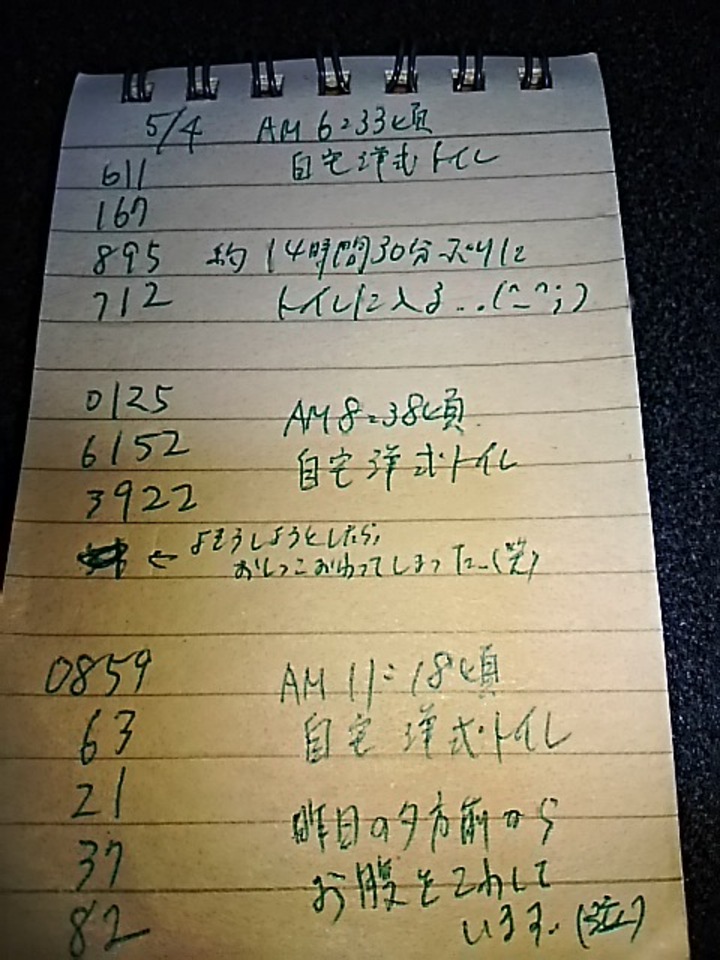 5/4 AM 6:33頃
611 自宅洋式トイレ
167
895 約14時間30分ぶりに
712 トイレに入る...(^_^;)
0125 AM8:38頃
6152 自宅洋式トイレ
3922
← よそうしようとしたら、
おしっこおわってしまった…(笑)
0859 AM 11:18頃
63 自宅洋式トイレ
21
37 昨日の夕方前から
82 お腹をこわして
います。(泣)